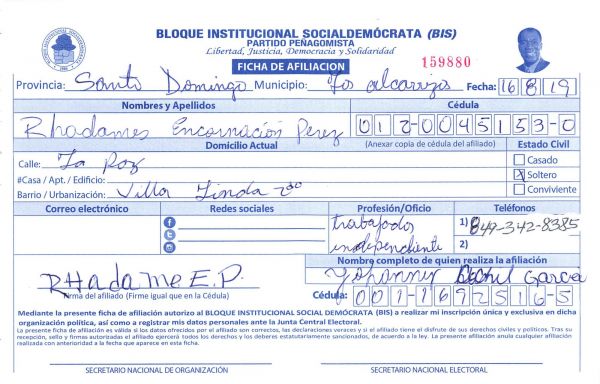 BLOQUE INSTITUCIONAL SOCIALDEMÓCRATA (BIS)
PARTIDO PEÑAGOMISTA
Libertad, Justicia, Democracia y Solidaridad
FICHA DE AFILIACION
159880
Provincia: Santo Domingo Municipio: Los alcarrizo Fecha: 16 8 19
Nombres y Apellidos Cédula
Rhadames Encarnación Perez 012-0045153-0
Domicilio Actual (Anexar copia de cédula del afiliado) Estado Civil
Calle: La Paz Casado
#Casa / Apt. / Edificio: X Soltero
Barrio / Urbanización: Villa Linda 2do Conviviente
Correo electrónico Redes sociales Profesión/Oficio Teléfonos
trabajador 1) 849-342-8385
independiente 2)
Nombre completo de quien realiza la afiliación
RHadame E.P. Garcia
Firma del afiliado (Firme igual que en la Cédula) Cédula: 001-1692516-5
Mediante la presente ficha de afiliación autorizo al BLOQUE INSTITUCIONAL SOCIAL DEMÓCRATA (BIS) a realizar mi inscripción única y exclusiva en dicha
organización política, así como a registrar mis datos personales ante la Junta Central Electoral.
La presente ficha de afiliación es válida si los datos ofrecidos por el afiliado son correctos, las declaraciones veraces y si el afiliado tiene el disfrute de sus derechos civiles y políticos. Tras su
recepción, sello y firmas autorizadas el afiliado ejercerá todos los derechos y los deberes estatutariamente sancionados, de acuerdo a la ley. La presente afiliación anula cualquier afiliación
realizada con anterioridad a la fecha que aparece en esta ficha.
SECRETARIO NACIONAL DE ORGANIZACIÓN SECRETARIO NACIONAL ELECTORAL